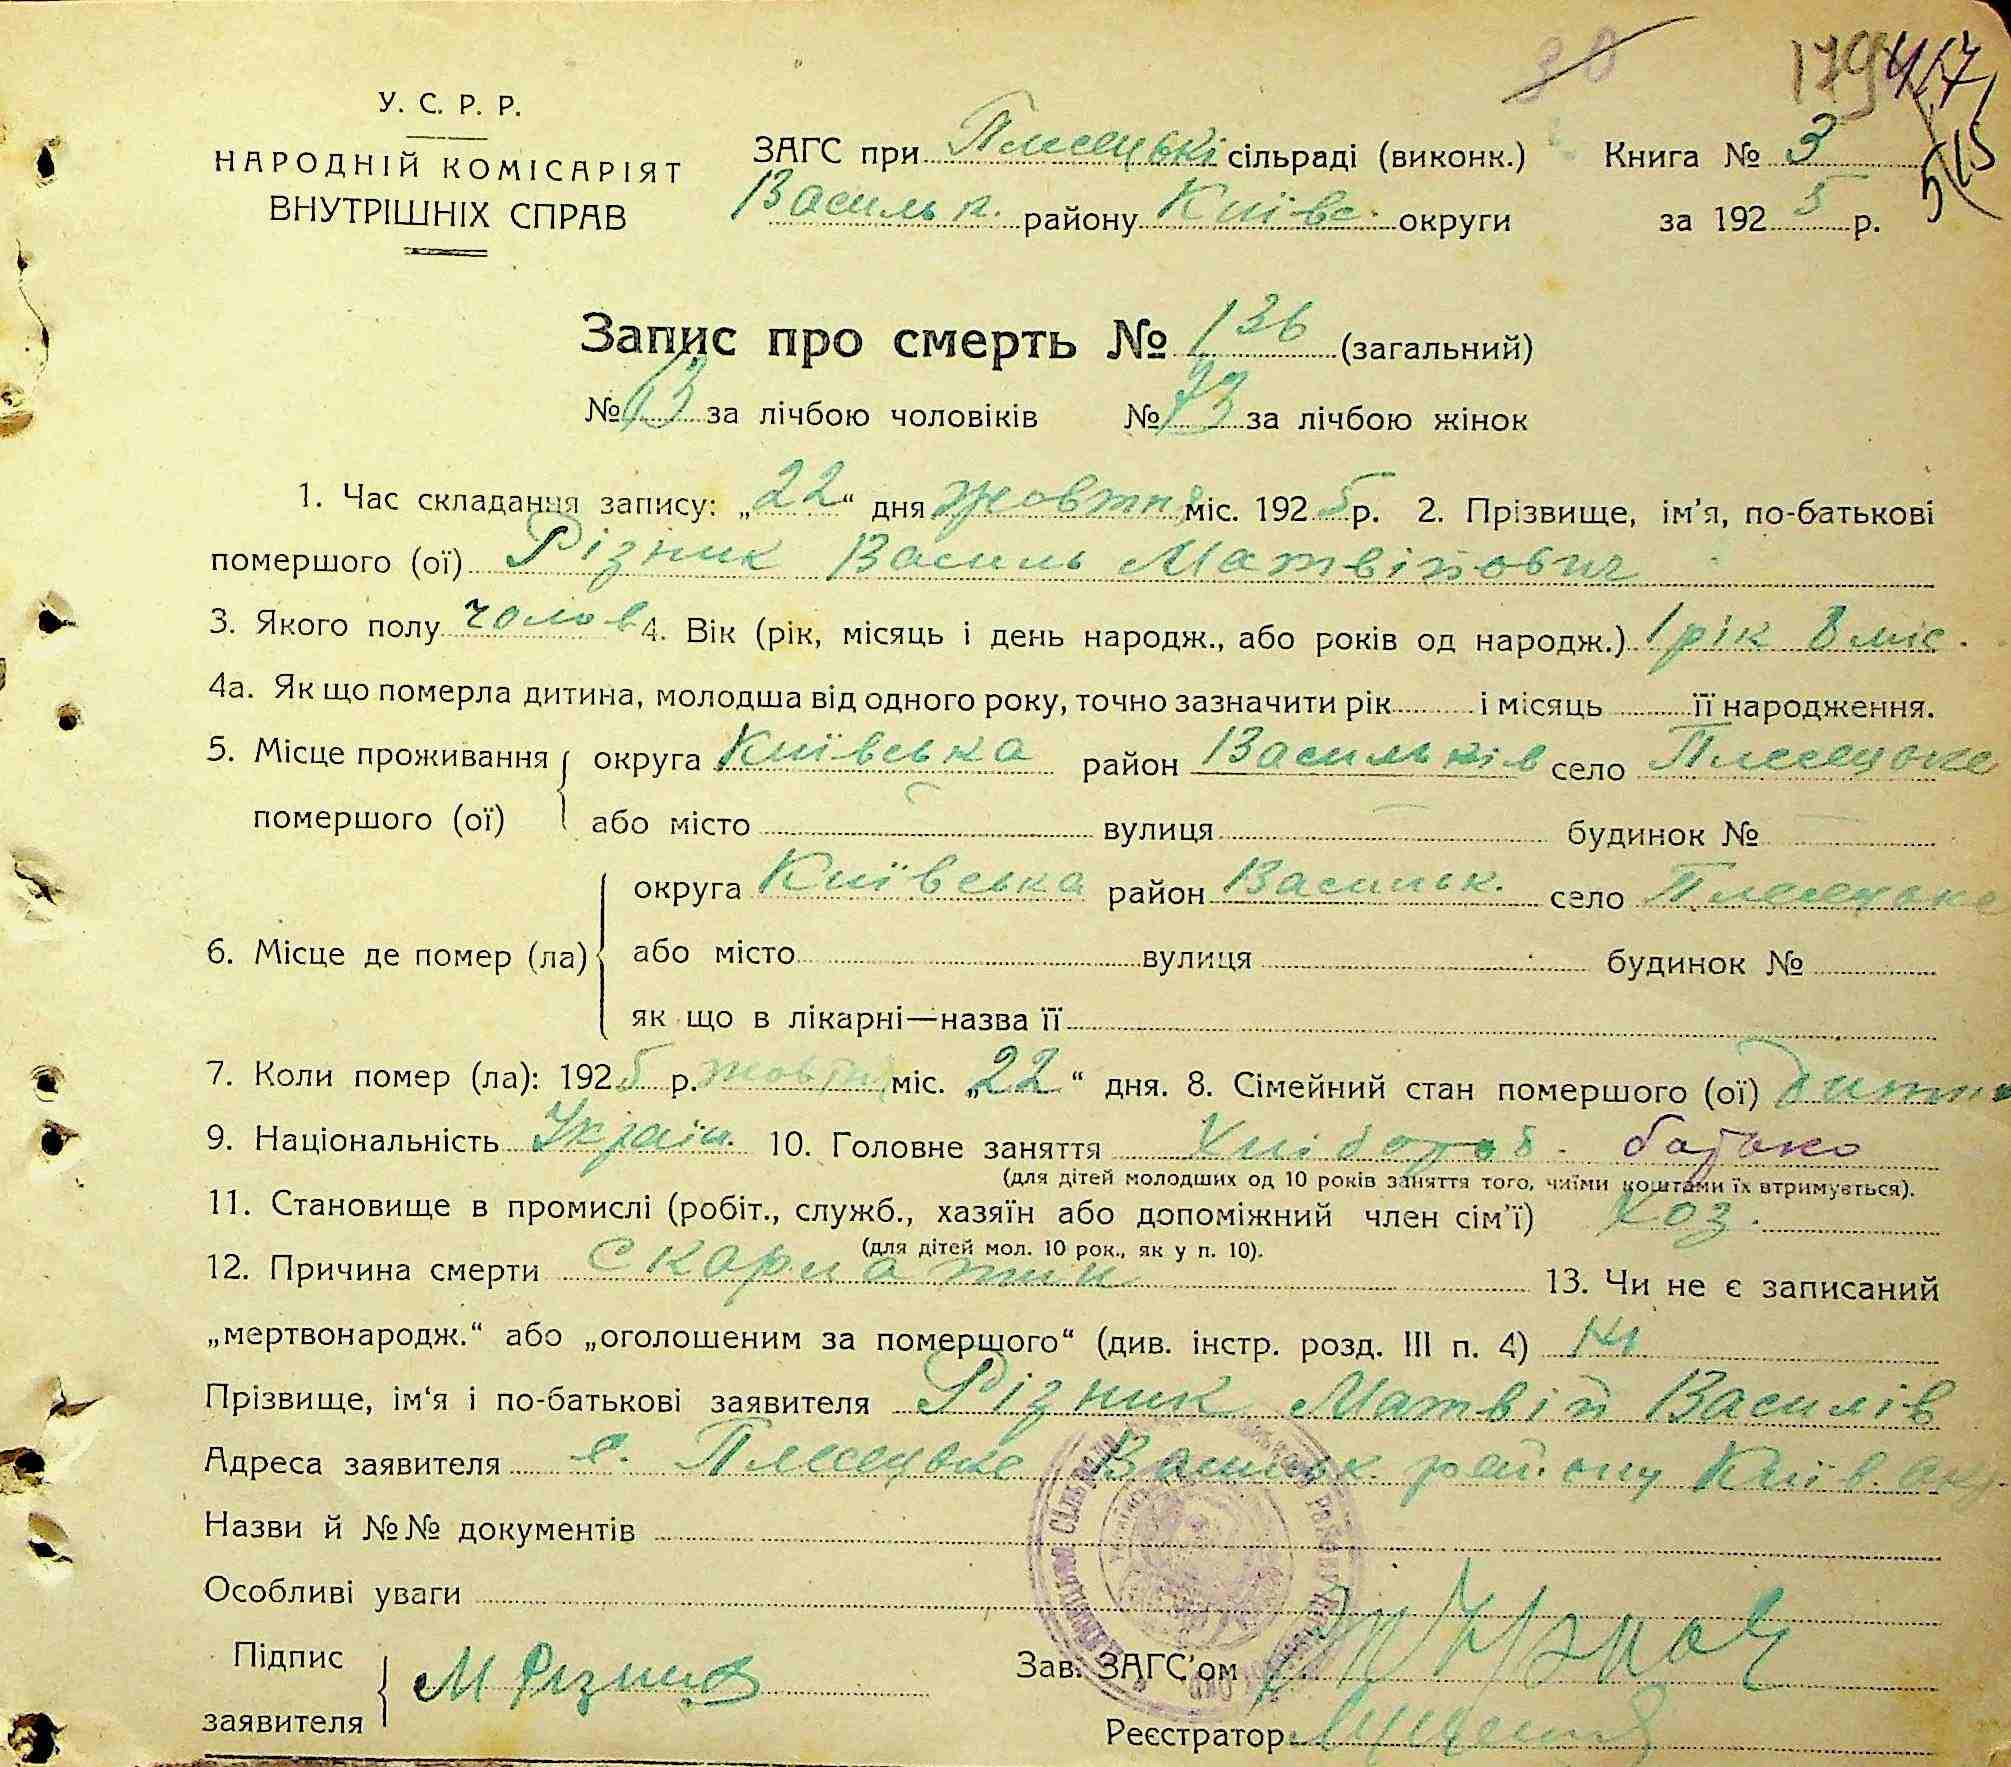 30 179 417
515
У. С. Р. Р.
НАРОДНІЙ КОМІСАРІЯТ
ВНУТРІШНІХ СПРАВ
ЗАГС при Плесецькі сільраді (виконк.) Книга № 3
Васильк. району Київс. округи за 1925 р.
Запис про смерть № 136 (загальний)
№ 63 за лічбою чоловіків № 73 за лічбою жінок
1. Час складання запису: „22“ дня жовтня міс. 1925 р. 2. Прізвище, ім’я, по-батькові
помершого (ої) Різник Василь Матвійович
3. Якого полу чолов 4. Вік (рік, місяць і день народж., або років од народж.) 1 рік 8 міс.
4а. Як що померла дитина, молодша від одного року, точно зазначити рік і місяць її народження.
5. Місце проживання помершого (ої) округа Київська район Васильків село Плесецьке
або місто вулиця будинок №
6. Місце де помер (ла) округа Київська район Васильк. село Плесецьке
або місто вулиця будинок №
як що в лікарні—назва її
7. Коли помер (ла): 1925 р. жовтня міс. „22“ дня. 8. Сімейний стан помершого (ої) дитина
9. Національність Україн. 10. Головне заняття Хлібороб. батько
(для дітей молодших од 10 років заняття того, чиїми коштами їх втримується).
11. Становище в промислі (робіт., служб., хазяїн або допоміжний член сім’ї) хоз.
(для дітей мол. 10 рок., як у п. 10).
12. Причина смерти скарлатин 13. Чи не є записаний
„мертвонародж.“ або „оголошеним за померщого“ (див. інстр. розд. III п. 4) Ні
Прізвище, ім‘я і по-батькові заявителя Різник Матвій Василів
Адреса заявителя с. Плесецьке Васильк. району Київ. окр.
Назви й №№ документів
Особливі уваги
Підпис заявителя М Різник
Зав. ЗАГС’ом
Реєстратор